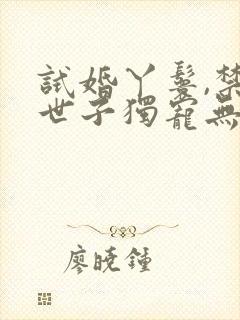 試婚丫鬟,禁
世子獨寵無
廖曉鐘